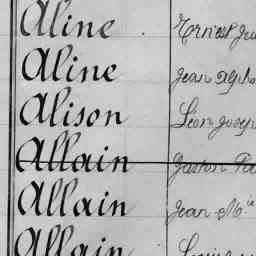 Aline Ernest
Aline Jean
Alison Léon Joseph
Allain Gaston
Allain Jean M
Allain